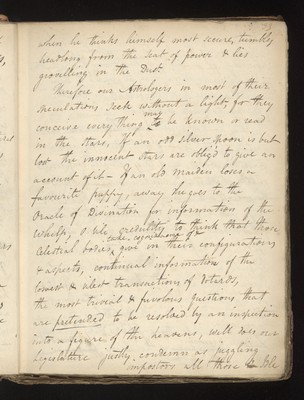 when he thinks himself most secure, tumbles
headlong from the seat of power & lies
grovelling in the Dust.
Therefore our Astrologers in most of their
speculations seek without a light, for they
conceive every thing may be known or read
in the Stars, If an odd silver spoon is but
lost the innocent stars are oblig'd to give an
account of it - If an old maiden loses a
favourite puppy, away she goes to the
Oracle of Divination for information of the
Whelp, O vile credulity to think that those
Celestial bodies take cognizance of &
give in their configurations
& aspects, continual information of the
lowest & vilest transactions of Dotards,
the most trivial & frivolous questions that
are pretended to be resolved by an inspection
into a figure of the heavens, well does our
legislature justly condemn as juggling
impostors all those